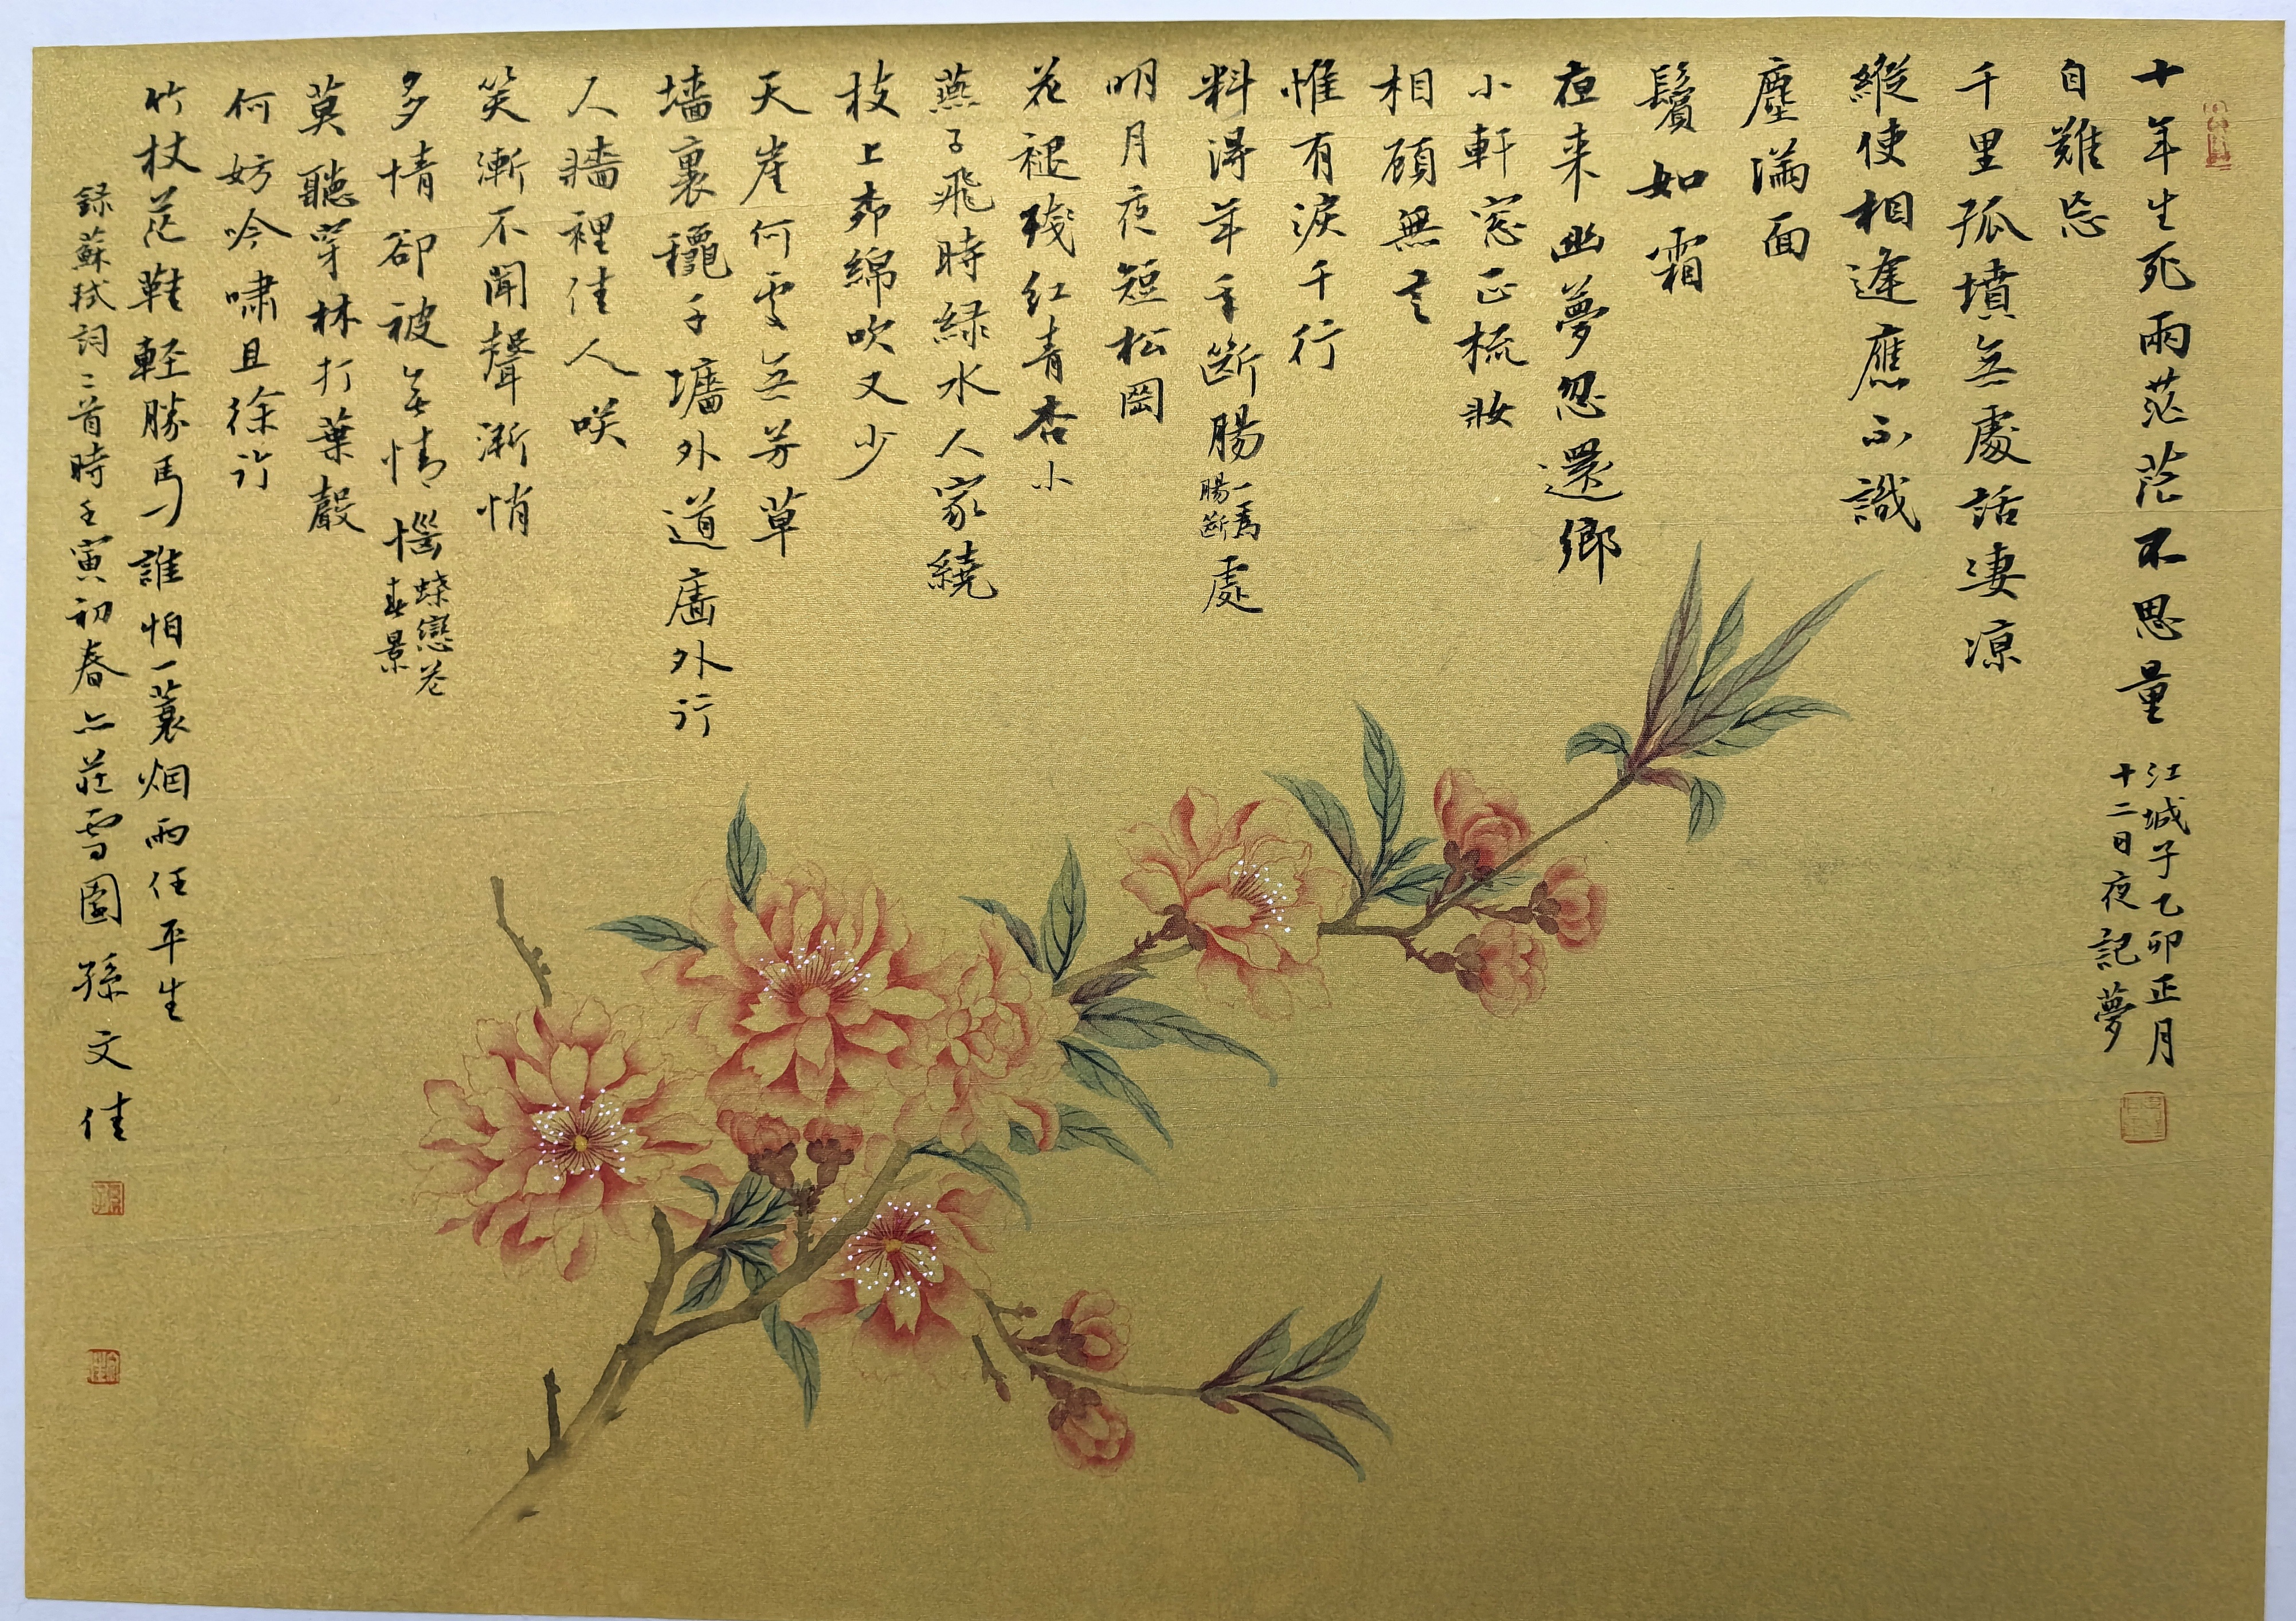 十年生死兩茫茫不思量
江城子乙卯正月
十二日夜記夢
自難忘
千里孤墳無處話淒涼
縱使相逢應不識
塵滿面
鬢如霜
夜來幽夢忽還鄉
小軒窓正梳妝
相顧無言
惟有淚千行
料得年年斷腸
一爲
腸斷
處
明月夜短松岡
花褪殘紅青杏小
燕子飛時綠水人家繞
枝上柳綿吹又少
天崖何處無芳草
墻裏鞦千墻外道墻外行
人墻裡佳人咲
笑漸不聞聲漸悄
多情卻被無情惱
蝶戀花
春景
莫聽穿林打葉聲
何妨吟嘯且徐行
竹杖芒鞋輕勝馬誰怕一蓑烟雨任平生
録蘇軾詞二首時壬寅初春於莊雪園孫文佳